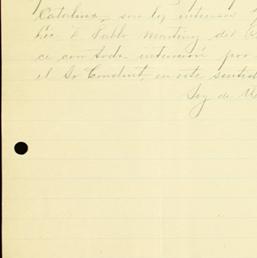 Catalina, son los intereses
hoc el Pablo Martinez del
ce con toda intención por
el Sr Conduit, en este sentid
Soy de U